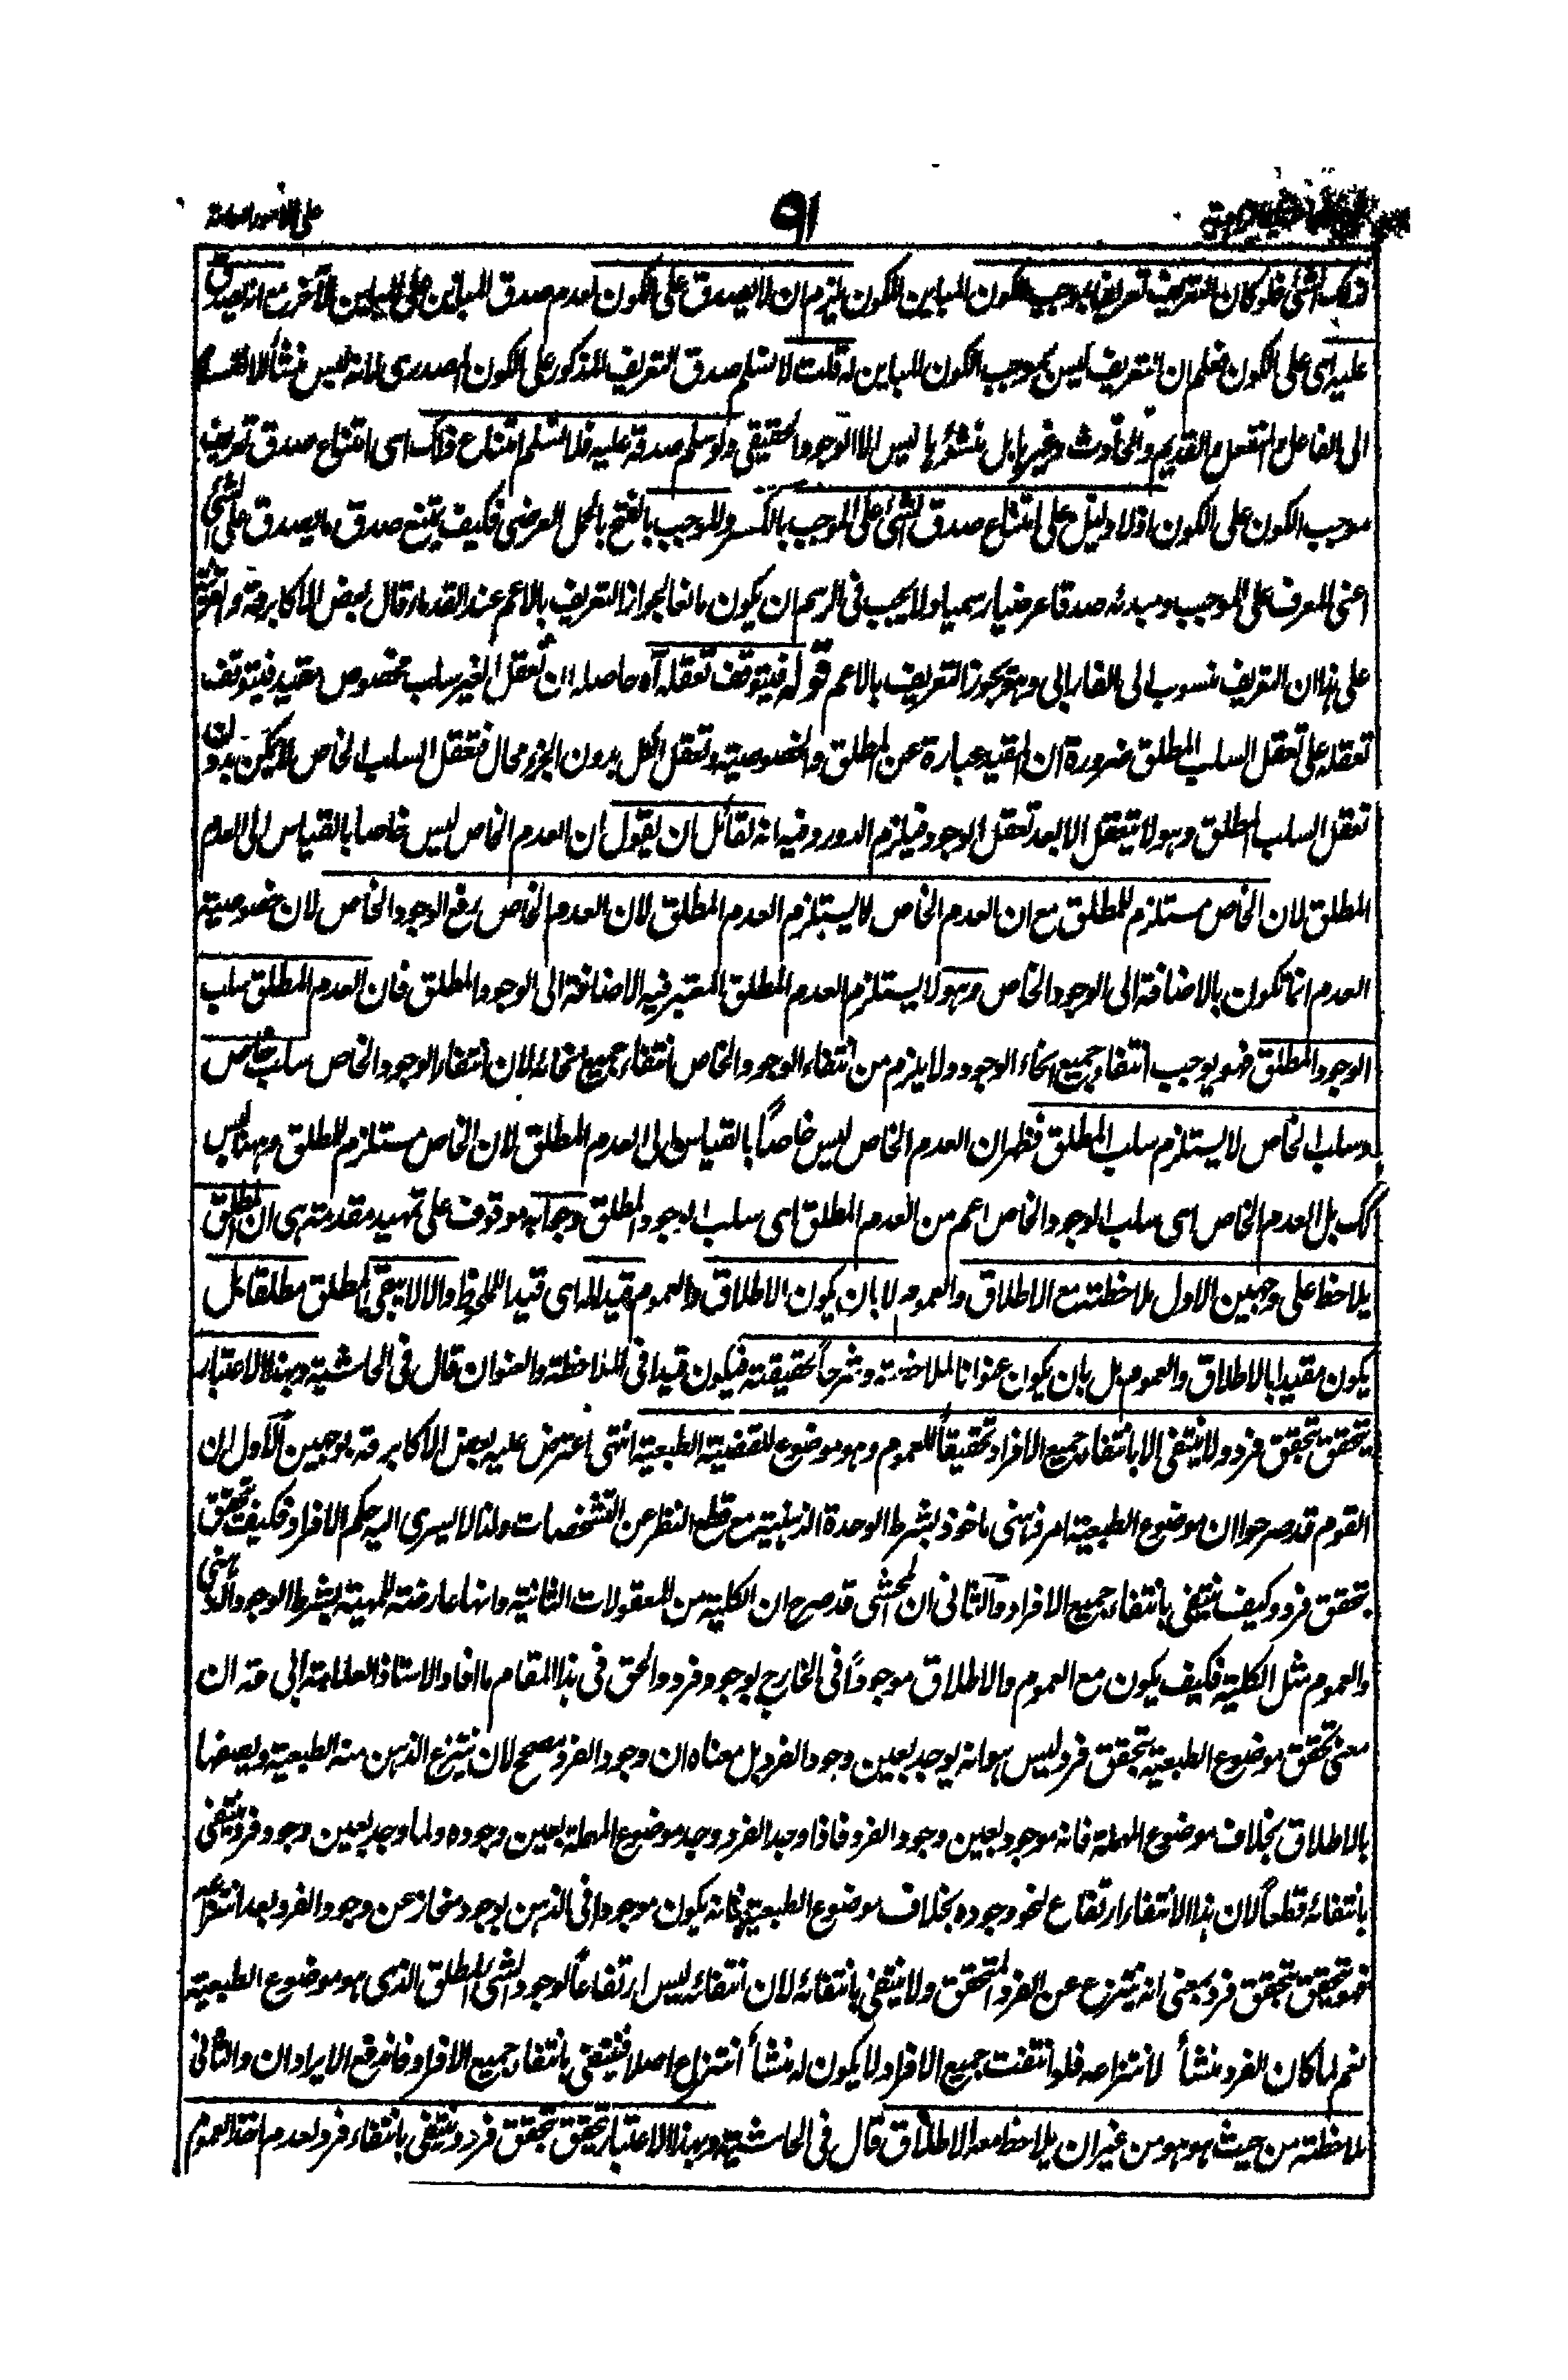 على الامور العامة
٩١
لذلك الشئ فلو كان التعريف تعريفا لموجب الكون المباين للكون يلزم ان لا يصدق على الكون لعدم صدق المباين على المباين الآخر مع انه يصدق
عليه اى على الكون فعلم ان التعريف ليس لموجب الكون المباين له قلت لا نسلم صدق التعريف المذكور على الكون المصدرى لانه ليس منشأ لانقسام
الى الفاعل والمنفعل والقديم والحادث وغيرها بل منشؤها ليس الا الوجود الحقيقى ولو سلم صدقه عليه فلا نسلم امتناع ذلك اى امتناع صدق تعريف
موجب الكون على الكون اذ لا دليل على امتناع صدق الشئ على الموجب بالكسر والموجب بالفتح بالحمل العرضى فكيف يمتنع صدق ما يصدق على الشئ
اعنى المعرف على الموجب ومبدئه صدقا عرضيا رسميا ولا يجب فى الرسم ان يكون مانعا لجواز التعريف بالاعم عند القدماء قال بعض الاكابر قه
على هذا ان التعريف منسوب الى الفارابى وهو يجوز التعريف بالاعم قوله فيتوقف تعقله آه حاصله ان تعقل الغير سلب مخصوص مقيد فيتوقف
تعقله على تعقل السلب المطلق ضرورة ان المقيد عبارة عن المطلق والخصوصية وتعقل الكل بدون الجزء محال فتعقل السلب الخاص لا يمكن بدون
تعقل السلب المطلق وهو لا يتعقل الا بعد تعقل الوجود فيلزم الدور وفيه انه لقائل ان يقول ان العدم الخاص ليس خاصا بالقياس الى العدم
المطلق لان الخاص مستلزم للمطلق مع ان العدم الخاص لا يستلزم العدم المطلق لان العدم الخاص رفع الوجود الخاص لان خصوصية
العدم انما تكون بالاضافة الى الوجود الخاص وهو لا يستلزم العدم المطلق المعتبر فيه الاضافة الى الوجود المطلق فان العدم المطلق سلب
الوجود المطلق فهو يوجب انتفاء جميع انحاء الوجود ولا يلزم من انتفاء الوجود الخاص انتفاء جميع انحائه لان انتفاء الوجود الخاص سلب خاص
وسلب الخاص لا يستلزم سلب المطلق فظهر ان العدم الخاص ليس خاصاً بالقياس الى العدم المطلق لان الخاص مستلزم للمطلق وههنا ليس
كك بل العدم الخاص اى سلب الوجود الخاص اعم من العدم المطلق اى سلب الوجود المطلق وجوابه موقوف على تمهيد مقدمة هى ان المطلق
يلاحظ على وجهين الاول ملاحظته مع الاطلاق والعموم لا بان يكون الاطلاق والعموم قيدا له اى قيد الملحوظ والا لا يبقى المطلق مطلقا بل
يكون مقيدا بالاطلاق والعموم بل بان يكون عنوانا لملاحظته وشرحاً لحقيقته فيكون قيدا فى الملاحظة والعنوان قال فى الحاشية وبهذا الاعتبار
يتحقق بتحقق فرد ولا ينتفى الا بانتفاء جميع الافراد تحقيقاً للعموم وهو موضوع للقضية الطبعية انتهى اعترض عليه بعض الاكابر قه بوجهين الاول ان
القوم قد صرحوا ان موضوع الطبعية امر ذهنى ماخوذ بشرط الوحدة الذهنية مع قطع النظر عن التشخصات ولذا لا يسرى اليه حكم الافراد فكيف يتحقق
بتحقق فرد وكيف ينتفى بانتفاء جميع الافراد والثانى ان المحشى قد صرح ان الكلية من المعقولات الثانية وانها عارضة للمهية بشرط الوجود الذهنى
والعموم مثل الكلية فكيف يكون مع العموم والاطلاق موجوداً فى الخارج بوجود فرد والحق فى هذا المقام ما افاد الاستاذ العلامة ابى قه ان
معنى تحقق موضوع الطبعية بتحقق فرد ليس هو انه يوجد بعين وجود الفرد بل معناه ان وجود الفرد مصحح لان ينتزع الذهن منه الطبعية ويصفها
بالاطلاق بخلاف موضوع المهملة فانه موجود بعين وجود الفرد فاذا وجد الفرد وجد موضوع المهملة بعين وجوده ولما وجد بعين وجود فرد ينتفى
بانتفائه قطعاً لان هذا الانتفاء ارتفاع لنحو وجوده بخلاف موضوع الطبعية فانه يكون موجودا فى الذهن بوجود منحاز عن وجود الفرد بعد انتزاعه
فهو يتحقق بتحقق فرد بمعنى انه ينتزع عن الفرد المتحقق ولا ينتفى بانتفائه لان انتفائه ليس ارتفاعاً لوجود الشئ المطلق الذى هو موضوع الطبعية
نعم لما كان الفرد منشأ لانتزاعه فلو انتفت جميع الافراد لا يكون له منشأ انتزاع اصلا فينتفى بانتفاء جميع الافراد فاندفع الايرادان والثانى
ملاحظته من حيث هو هو من غير ان يلاحظ معه الاطلاق قال فى الحاشية وبهذا الاعتبار يتحقق بتحقق فرد وينتفى بانتفاء فرد لعدم اخذ العموم